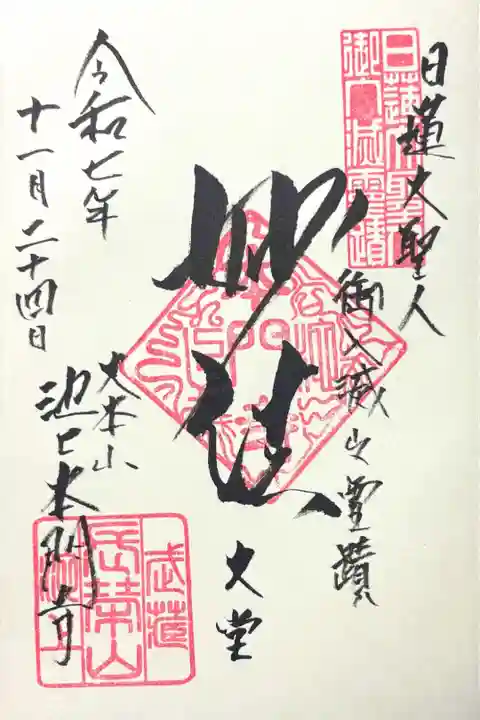 日蓮大聖人
御入滅之霊蹟
日蓮大聖人
御入滅之霊蹟
妙法
大堂
令和七年
十一月二十四日
大本山
池上本門寺
武蔵
長栄山